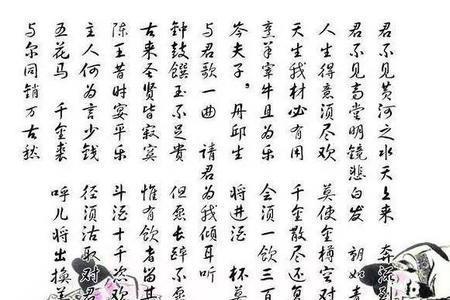 君不见黄河之水天上来 奔流到
君不见高堂明镜悲白发 朝如青
人生得意须尽欢 莫使金樽空对
天生我材必有用 千金散尽还复
烹羊宰牛且为乐 会须一饮三百
岑夫子。丹邱生 将进酒 杯莫
与君歌一曲 请君为我倾耳听
钟鼓馔玉不足贵 但愿长醉不愿
古来圣贤皆寂寞 惟有饮者留其
陈王昔时宴平乐 斗酒十千恣欢
主人何为言少钱 径须沽取对君
五花马 千金裘 呼儿将出换美
与尔同销万古愁